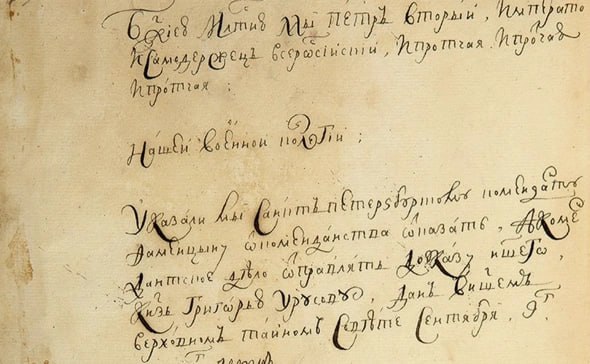 Бжиею Млтию Мы Петръ Вторыи, Императо
И Самодержецъ всерѡсiискiи, И протчая И протчая
И протчая :
Нашеи военнои колегiи :
Указали мы Санктъ петерзбургскому комендант
 ѿ комендантства ѿказать, А коме
дантское дѣло ѿправлять до указу нашего
Кнзь Григорью Урусову, Данъ в нашемъ
верховномъ таиномъ Совѣте Сентября, 9г